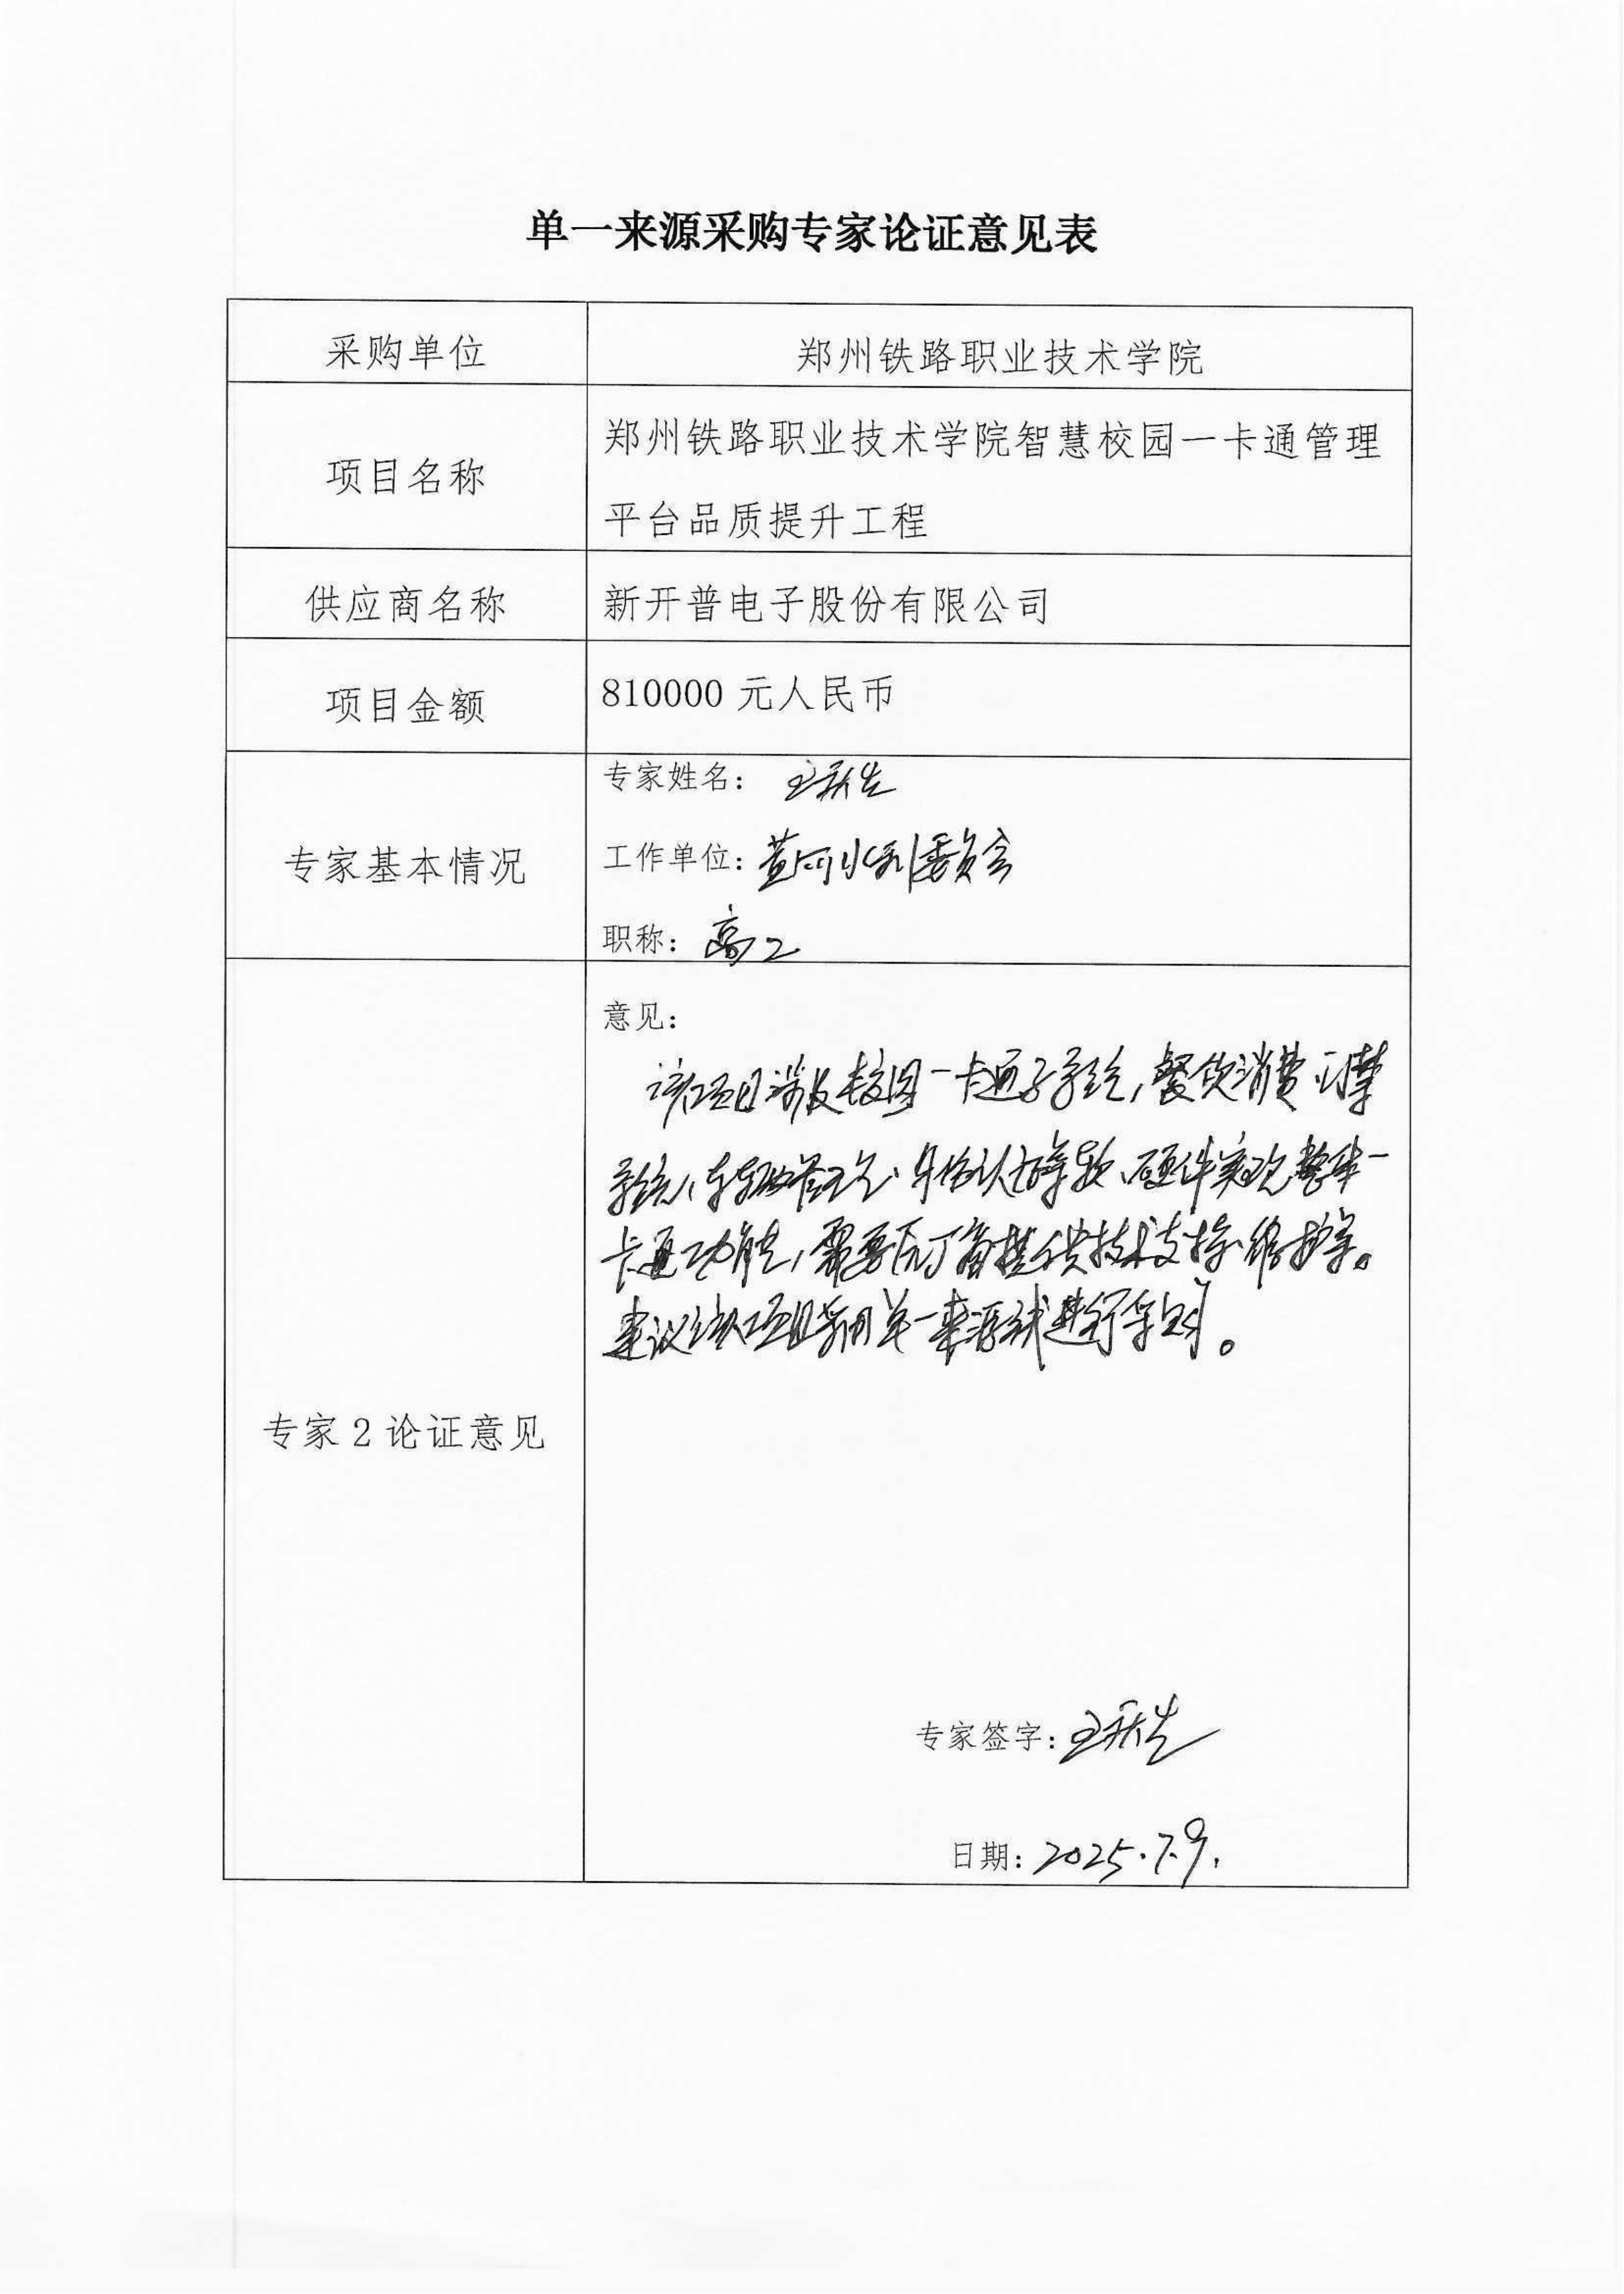 单一来源采购专家论证意见表
采购单位
郑州铁路职业技术学院
项目名称
郑州铁路职业技术学院智慧校园一卡通管理
平台品质提升工程
供应商名称
新开普电子股份有限公司
项目金额
810000 元人民币
专家基本情况
专家姓名：
工作单位：黄河水利委员会
职称：高工
专家 2 论证意见
意见：
该项目涉及校园一卡通子系统，餐饮消费、门禁
系统、身份认证等软、硬件实现整体一
卡通功能，需要原厂商提供技术支持、维护等。
建议该项目采用单一来源方式进行采购。
专家签字：
日期：2025.7.9.